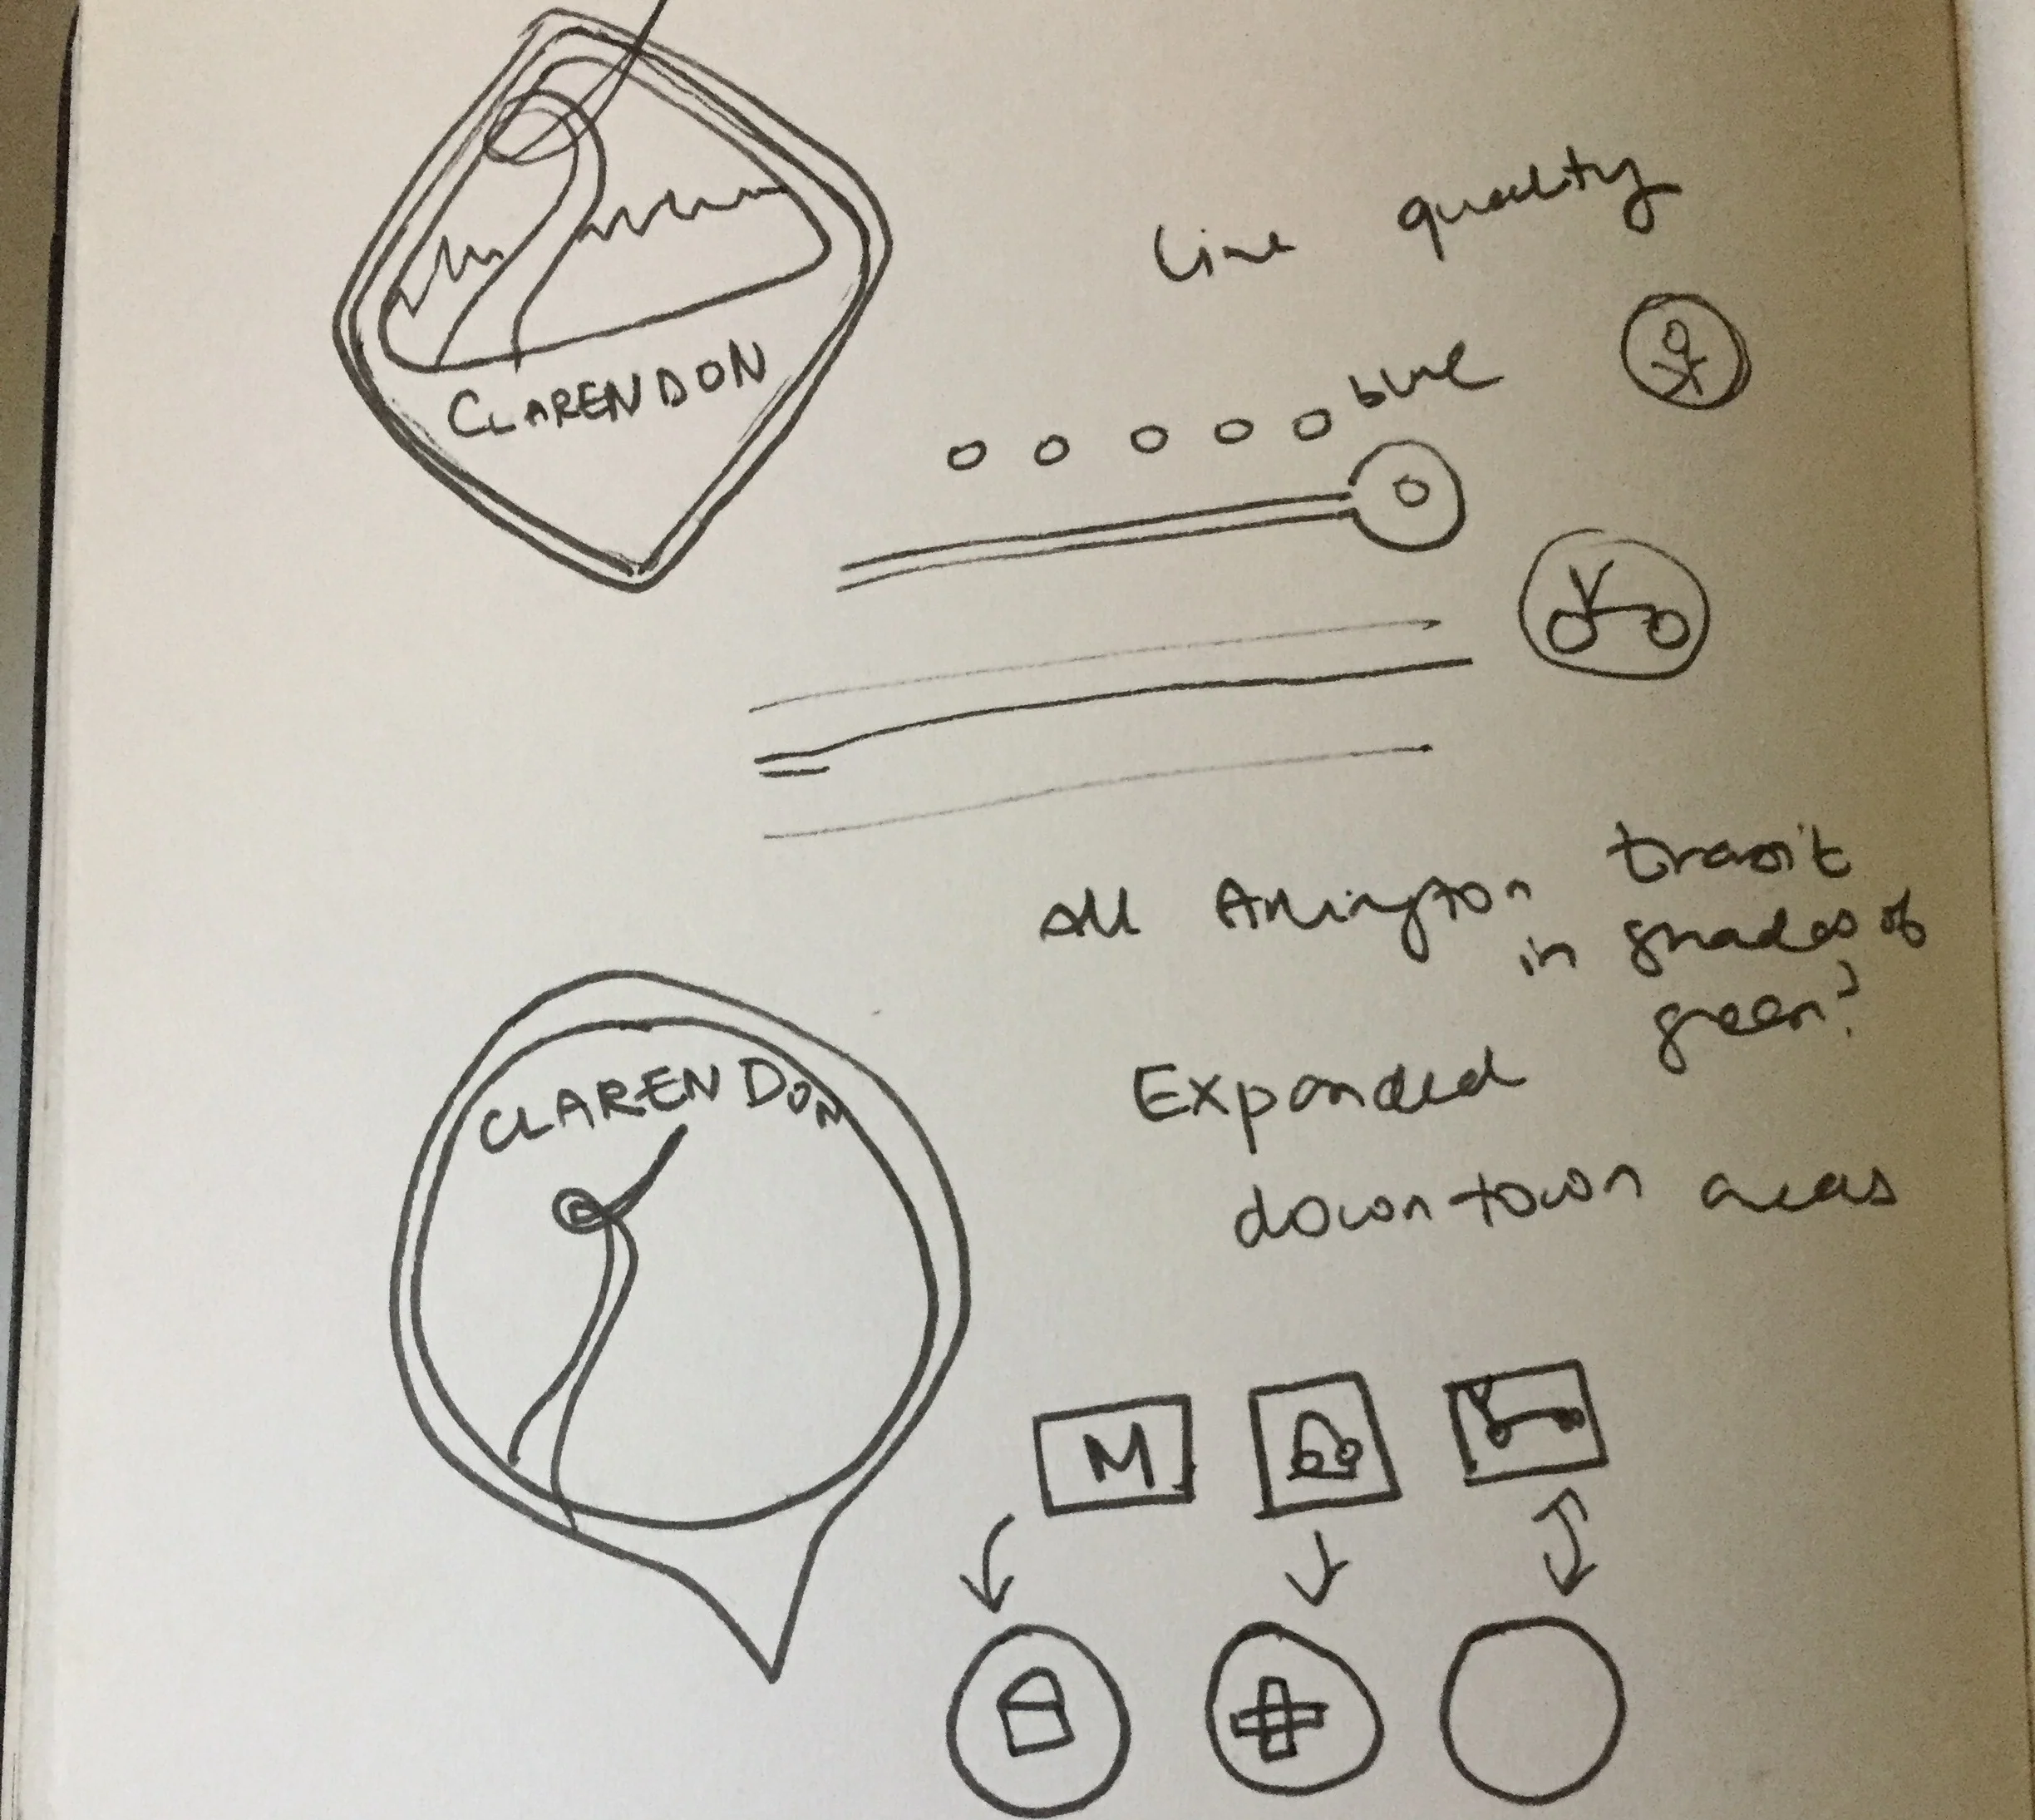 CLARENDON
Line quality
blue
All Arlington transit
in shades of
green?
CLARENDON
Expanded
downtown areas
M